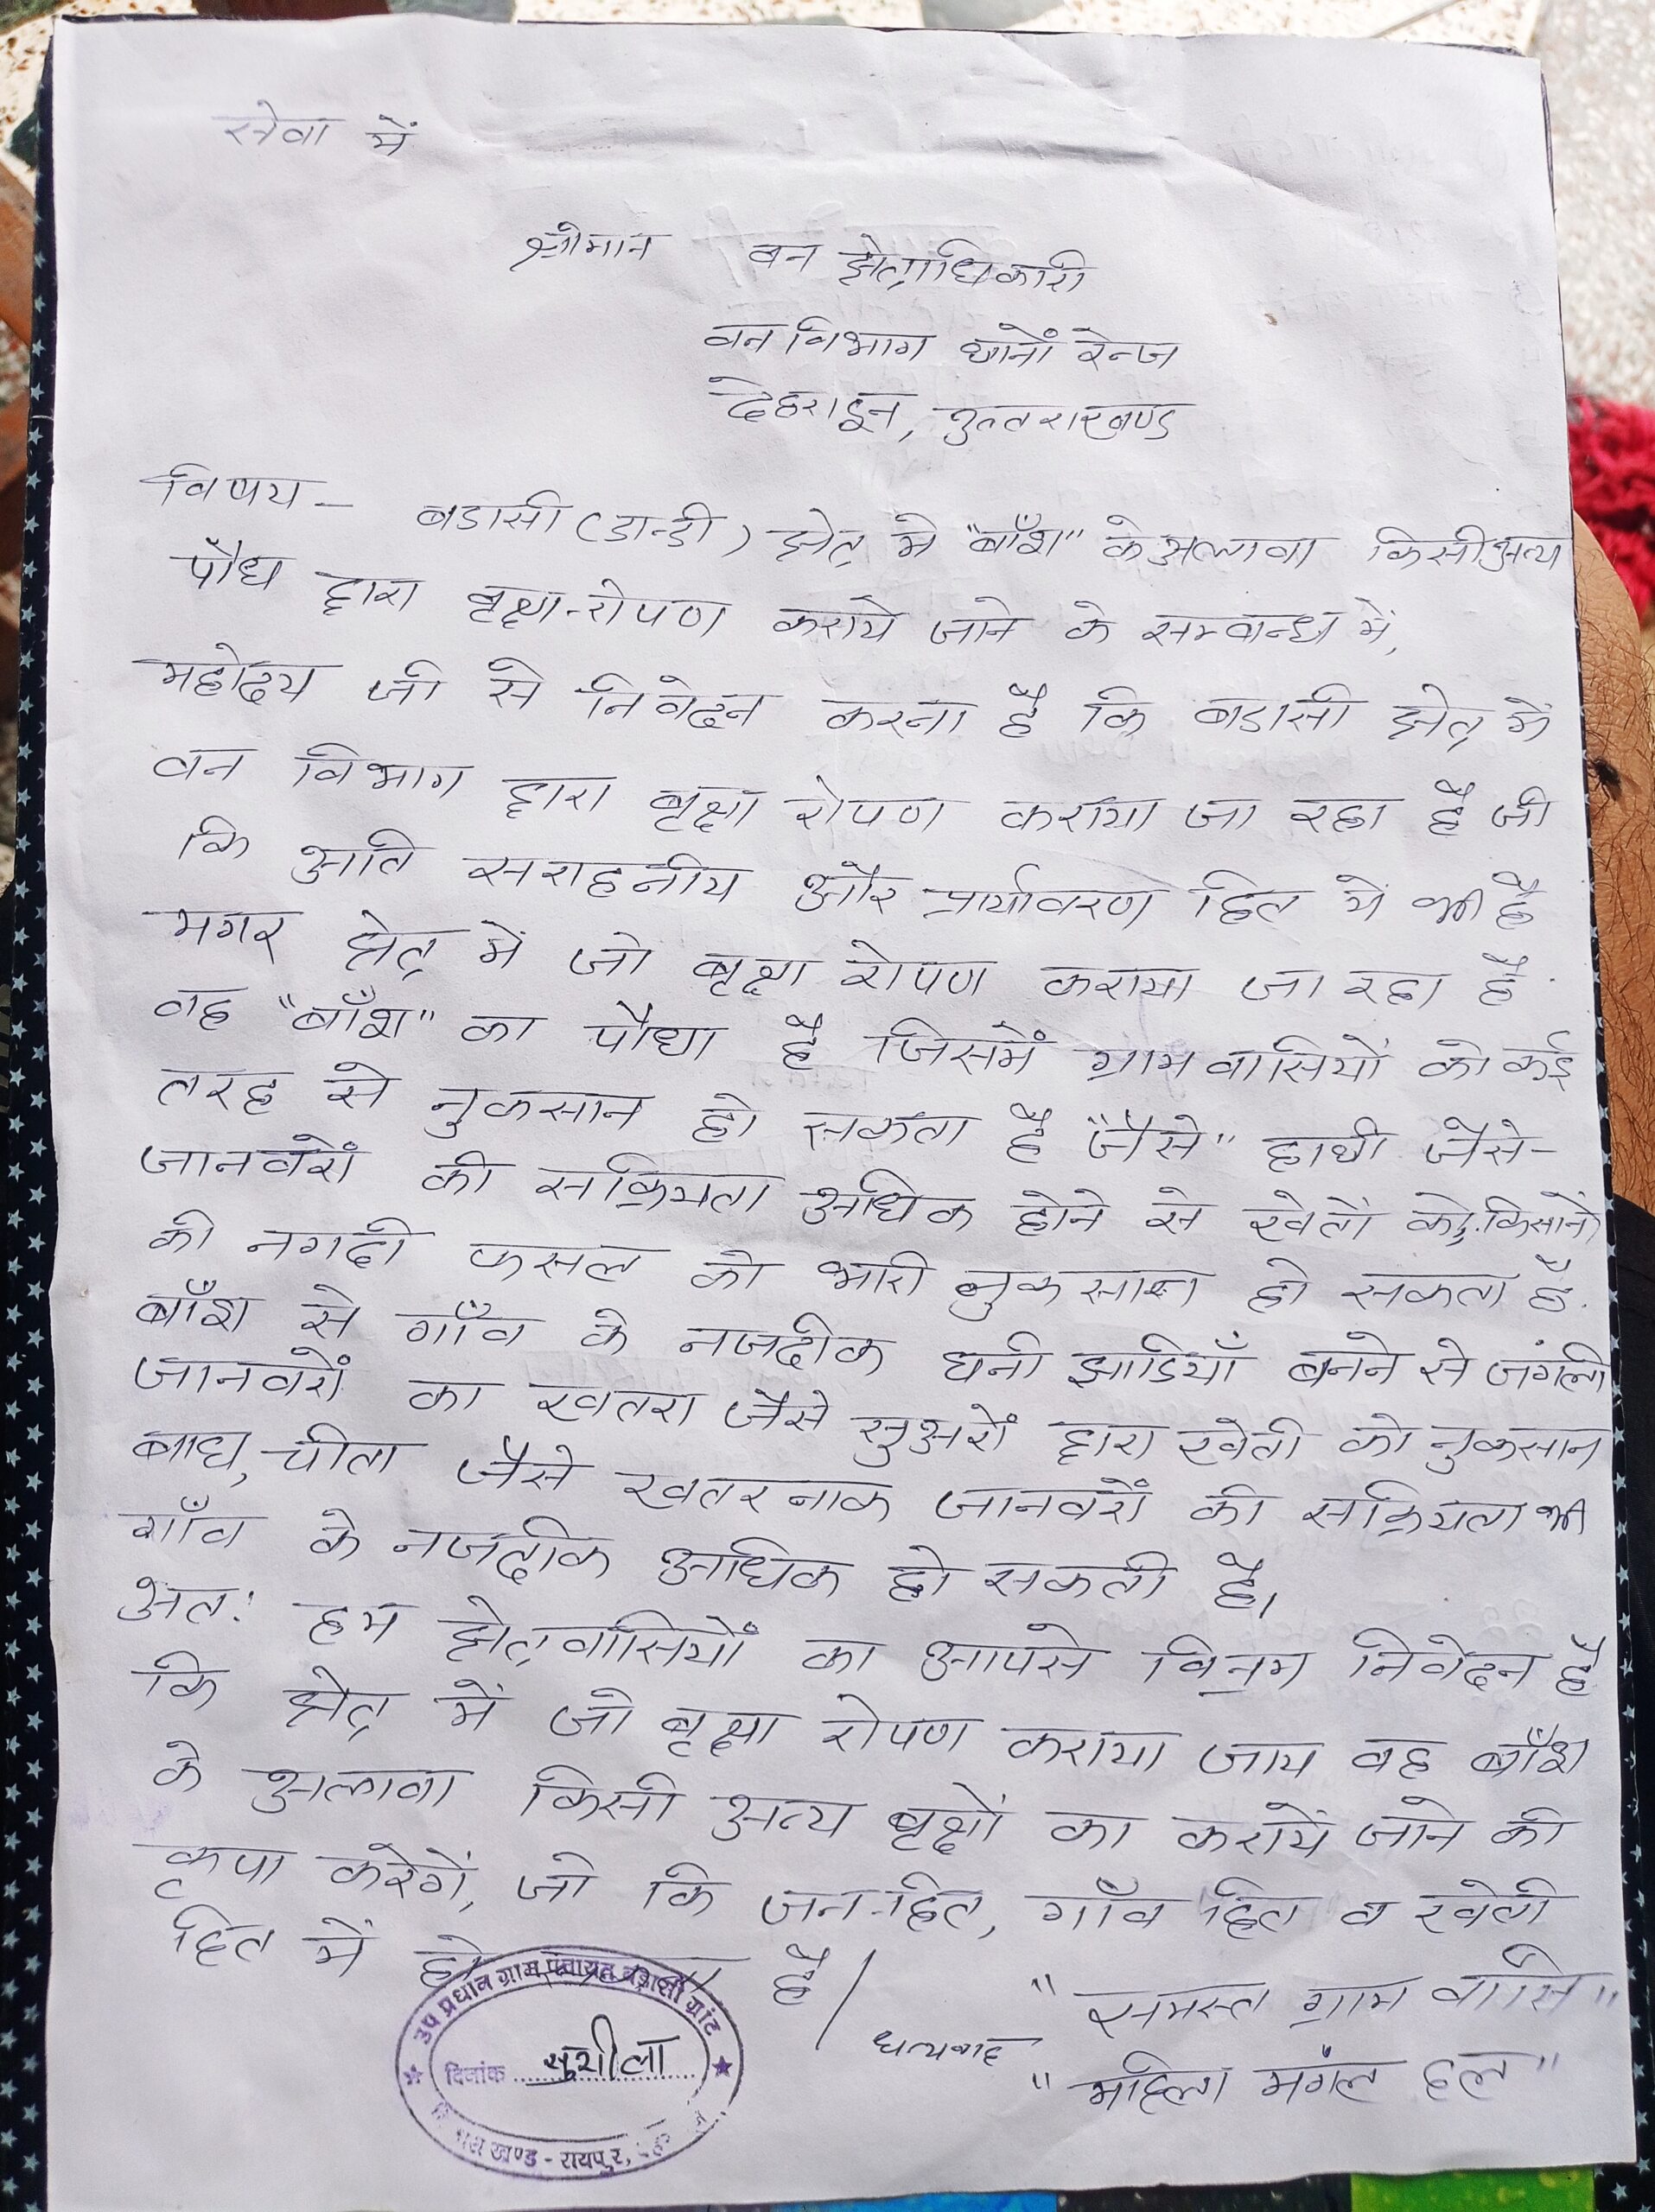 सेवा में
श्रीमान वन क्षेत्राधिकारी
वन विभाग थानों रेन्ज
देहरादून, उत्तराखण्ड
विषय - बडासी (डान्डी) क्षेत्र मे "बाँश" के अलावा किसी अन्य
पौध द्वारा बृक्षा-रोपण कराये जाने के सम्बान्ध में,
महोदय जी से निवेदन करना है कि बडासी क्षेत्र में
वन विभाग द्वारा बृक्षा रोपण कराया जा रहा है जो
कि अति सराहनीय और प्रार्यावरण हित मे भी है
मगर क्षेत्र में जो बृक्षा रोपण कराया जा रहा है.
वह "बाँश" का पौधा है जिसमें ग्राम वासियों को कई
तरह से नुकसान हो सकता है "जैसे" हाथी जैसे-
जानवरों की सक्रियता अधिक होने से खेतों को, किसानों
की नगदी फसल को भारी नुकसान हो सकता है.
बाँश से गाँव के नजदीक घनी झाडियाँ बनने से जंगली
जानवरों का खतरा जैसे सुअरों द्वारा खेती को नुकसान
बाघ, चीता जैसे खतरनाक जानवरों की सक्रियता भी
गाँव के नजदीक अधिक हो सकती है,
अत: हम क्षेत्रवासियों का आपसे विनम्र निवेदन है
कि क्षेत्र में जो बृक्षा रोपण कराया जाय वह बाँश
के अलावा किसी अन्य बृक्षों का करायें जाने की
कृपा करेगें, जो कि जन-हित, गाँव हित व खेती
हित में है/
धन्यवाद
"समस्त ग्राम वासि"
"महिला मंगल दल"
उप प्रधान ग्राम पंचायत बडासी ग्रांट
दिनांक सुशीला
खण्ड - रायपुर,